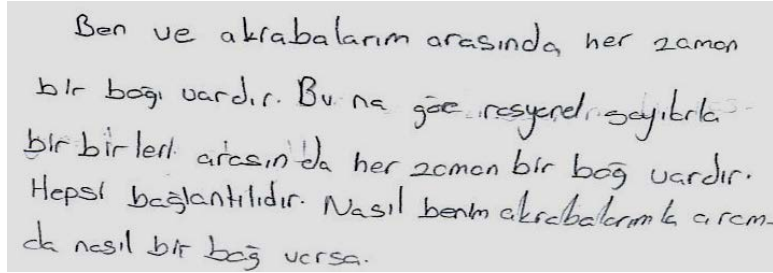 Ben ve akrabalarım arasında her zaman
bir bağı vardır. Bu na göre rasyonel sayılarla
bir birleri arasın da her zaman bir bağ vardır.
Hepsi bağlantılıdır. Nasıl benim akrabalarımla aram-
da nasıl bir bağ varsa.